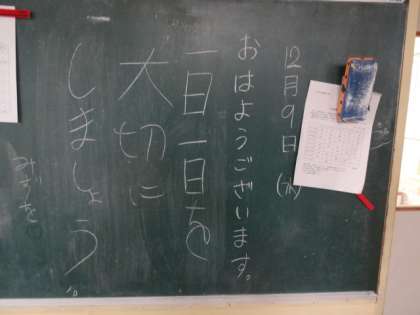 12月9日(水)
おはようございます。
一日一日を
大切に
しましょう。